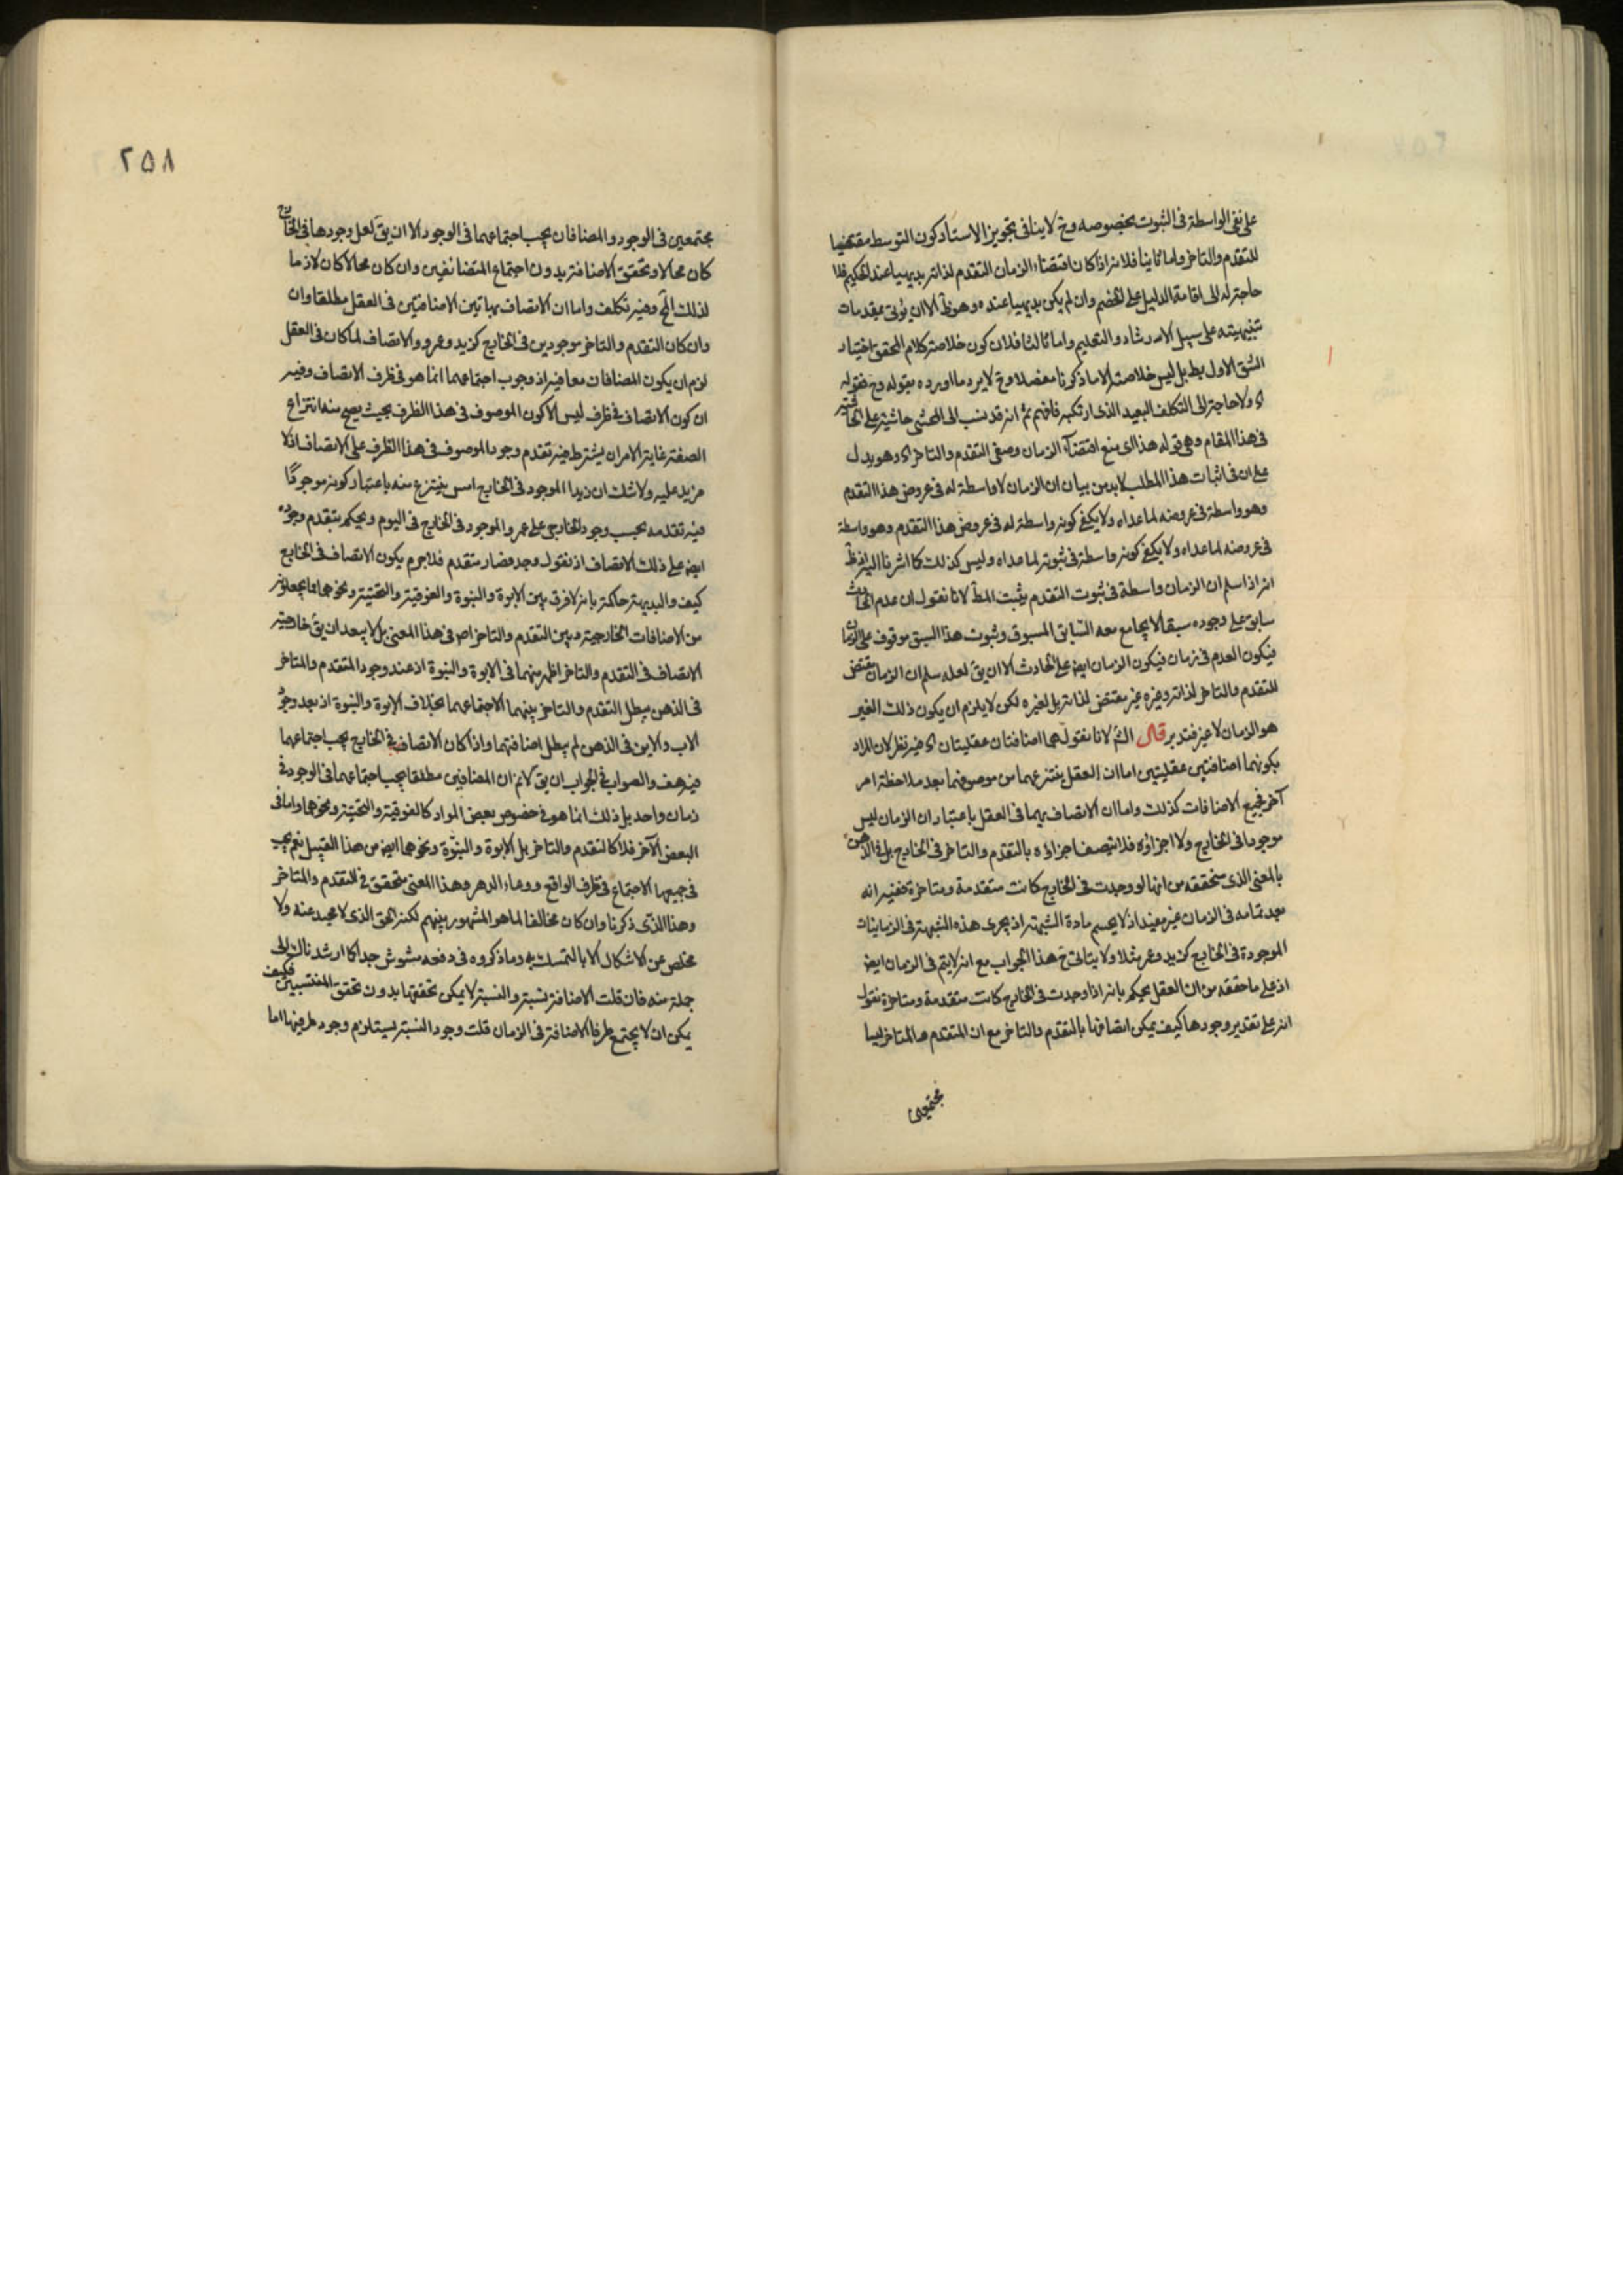 على نفى الواسطة فى الثبوت بخصوصه وح لا ينافى تجويز الاستاد كون التوسط مقتضيا
للتقدم والتاخر واما ثانيا فلانه اذا كان اقتضاء الزمان التقدم لذاته بديهيا عند الحكيم فلا
حاجة له الى اقامة الدليل على الخصم وان لم يكن بديهيا عنده وهو ظ الا ان يؤتى بمقدمات
تنبيهية على سبيل الارشاد والتعليم واما ثالثا فلان كون خلاصة كلام المحقق اختيار
الشق الاول بط بل ليس خلاصته الا ما ذكرنا مفصلا وح لا يرد ما اورده بقوله وح فقوله
اه ولا حاجة الى التكلف البعيد الذى ارتكبه فافهم ثم انه قد نسب الى المحشى حاشية على
فى هذا المقام وهى قوله هذا اى منع اقتضاء الزمان وصفى التقدم والتاخر اه وهو يدل
على ان فى اثبات هذا المطلب لا بد من بيان ان الزمان لا واسطة له فى عروض هذا التقدم
وهو واسطة فى عروضه لما عداه ولا يكفى كونه واسطة له فى عروض هذا التقدم وهو واسطة
فى عروضه لما عداه ولا يكفى كونه واسطة فى ثبوته لما عداه وليس كذلك كما اشرنا اليه اذ ظ
انه اذا سلم ان الزمان واسطة فى ثبوت التقدم يثبت المط لانا نقول ان عدم الحادث
سابق على وجوده سبقا لا يجامع معه السابق المسبوق وثبوت هذا السبق موقوف على الزمان
فيكون العدم فى زمان فيكون الزمان ايض على الحادث الا ان يق لعله سلم ان الزمان مقتض
للتقدم والتاخر لذاته وغيره غير مقتض لذاته بل لغيره لكن لا يلزم ان يكون ذلك الغير
هو الزمان لا غير فتدبر قال الش لانا نقول هما اضافتان عقليتان اه فيه نظر لان المراد
بكونهما اضافتين عقليتين اما ان العقل ينتزعهما من موصوفهما بعد ملاحظة امر
آخر فجميع الاضافات كذلك واما ان الاتصاف بهما فى العقل باعتبار ان الزمان ليس
موجودا فى الخارج ولا اجزاؤه فلا تتصف اجزاؤه بالتقدم والتاخر فى الخارج بل فى الذهن
بالمعنى الذى سنحققه من انها لو وجدت فى الخارج كانت متقدمة ومتاخرة ففيه انه
بعد تمامه فى الزمان غير مفيد اذ لا يحسم مادة الشبهة اذ يجرى هذه الشبهة فى الزمانيات
الموجودة فى الخارج كزيد وعمر مثلا ولا يتاتى ح هذا الجواب مع انه لا يتم فى الزمان ايض
اذ على ما حققه من ان العقل يحكم بانه اذا وجدت فى الخارج كانت متقدمة ومتاخرة نقول
انه على تقدير وجودها كيف يمكن اتصافها بالتقدم والتاخر مع ان المتقدم والمتاخر ليسا
مجتمعين
٢٥٨
مجتمعين فى الوجود والمضافان يجب اجتماعهما فى الوجود الا ان يق لعل وجودها فى الخارج
كان محالا وتحقق الاضافة بدون اجتماع المتضائفين وان كان محالا كان لازما
لذلك المح وفيه تكلف واما ان الاتصاف بهاتين الاضافتين فى العقل مطلقا وان
وان كان التقدم والتاخر موجودين فى الخارج كزيد وعمرو والاتصاف لما كان فى العقل
لزم ان يكون المضافان معا فيه اذ وجوب اجتماعهما انما هو فى ظرف الاتصاف وفيه
ان كون الاتصاف فى ظرف ليس الا كون الموصوف فى هذا الظرف بحيث يصح منه انتزاع
الصفة غاية الامر ان يشترط فيه تقدم وجود الموصوف فى هذا الظرف على الاتصاف اذ لا
مزيد عليه ولا شك ان زيدا الموجود فى الخارج امس ينتزع منه باعتبار كونه موجودا
فيه تقدمه بحسب وجود الخارجى على عمرو الموجود فى الخارج فى اليوم ويحكم بتقدم وجوده
ايض على ذلك الاتصاف اذ نقول وجد فصار متقدم فلا جرم يكون الاتصاف فى الخارج
كيف والبديهة حاكمة بانه لا فرق بين الابوة والبنوة والفوقية والتحتية ونحوهما مما يجعلونه
من الاضافات الخارجية وبين التقدم والتاخر اص فى هذا المعنى بل لا يبعد ان يق خارجية
الاتصاف فى التقدم والتاخر اظهر منهما فى الابوة والبنوة اذ عند وجود المتقدم والمتاخر
فى الذهن يبطل التقدم والتاخر بينهما لاجتماعهما بخلاف الابوة والبنوة اذ بعد وجود
الاب والابن فى الذهن لم يبطل اضافتهما واذا كان الاتصاف فى الخارج يجب اجتماعهما
فيه هف والصواب فى الجواب ان يق لا نم ان المضافين مطلقا يجب اجتماعهما فى الوجود فى
زمان واحد بل ذلك انما هو فى خصوص بعض المواد كالفوقية والتحتية ونحوهما واما فى
البعض الآخر فلا كالتقدم والتاخر بل الابوة والبنوة ونحوهما ايض من هذا القبيل نعم يجب
فى جميعها الاجتماع فى ظرف الواقع ووعاء الدهر وهذا المعنى متحقق فى المتقدم والمتاخر
وهذا الذى ذكرنا وان كان مخالفا لما هو المشهور بينهم لكنه الحق الذى لا محيد عنه ولا
مخلص عن الاشكال الا بالتمسك به وما ذكروه فى دفعه مشوش جدا كما ارشدناك الى
جملة منه فان قلت الاضافة نسبة والنسبة لا يمكن تحققها بدون تحقق المنتسبين فكيف
يمكن ان لا يجتمع طرفا الاضافة فى الزمان قلت وجود النسبة يستلزم وجود طرفيها اما